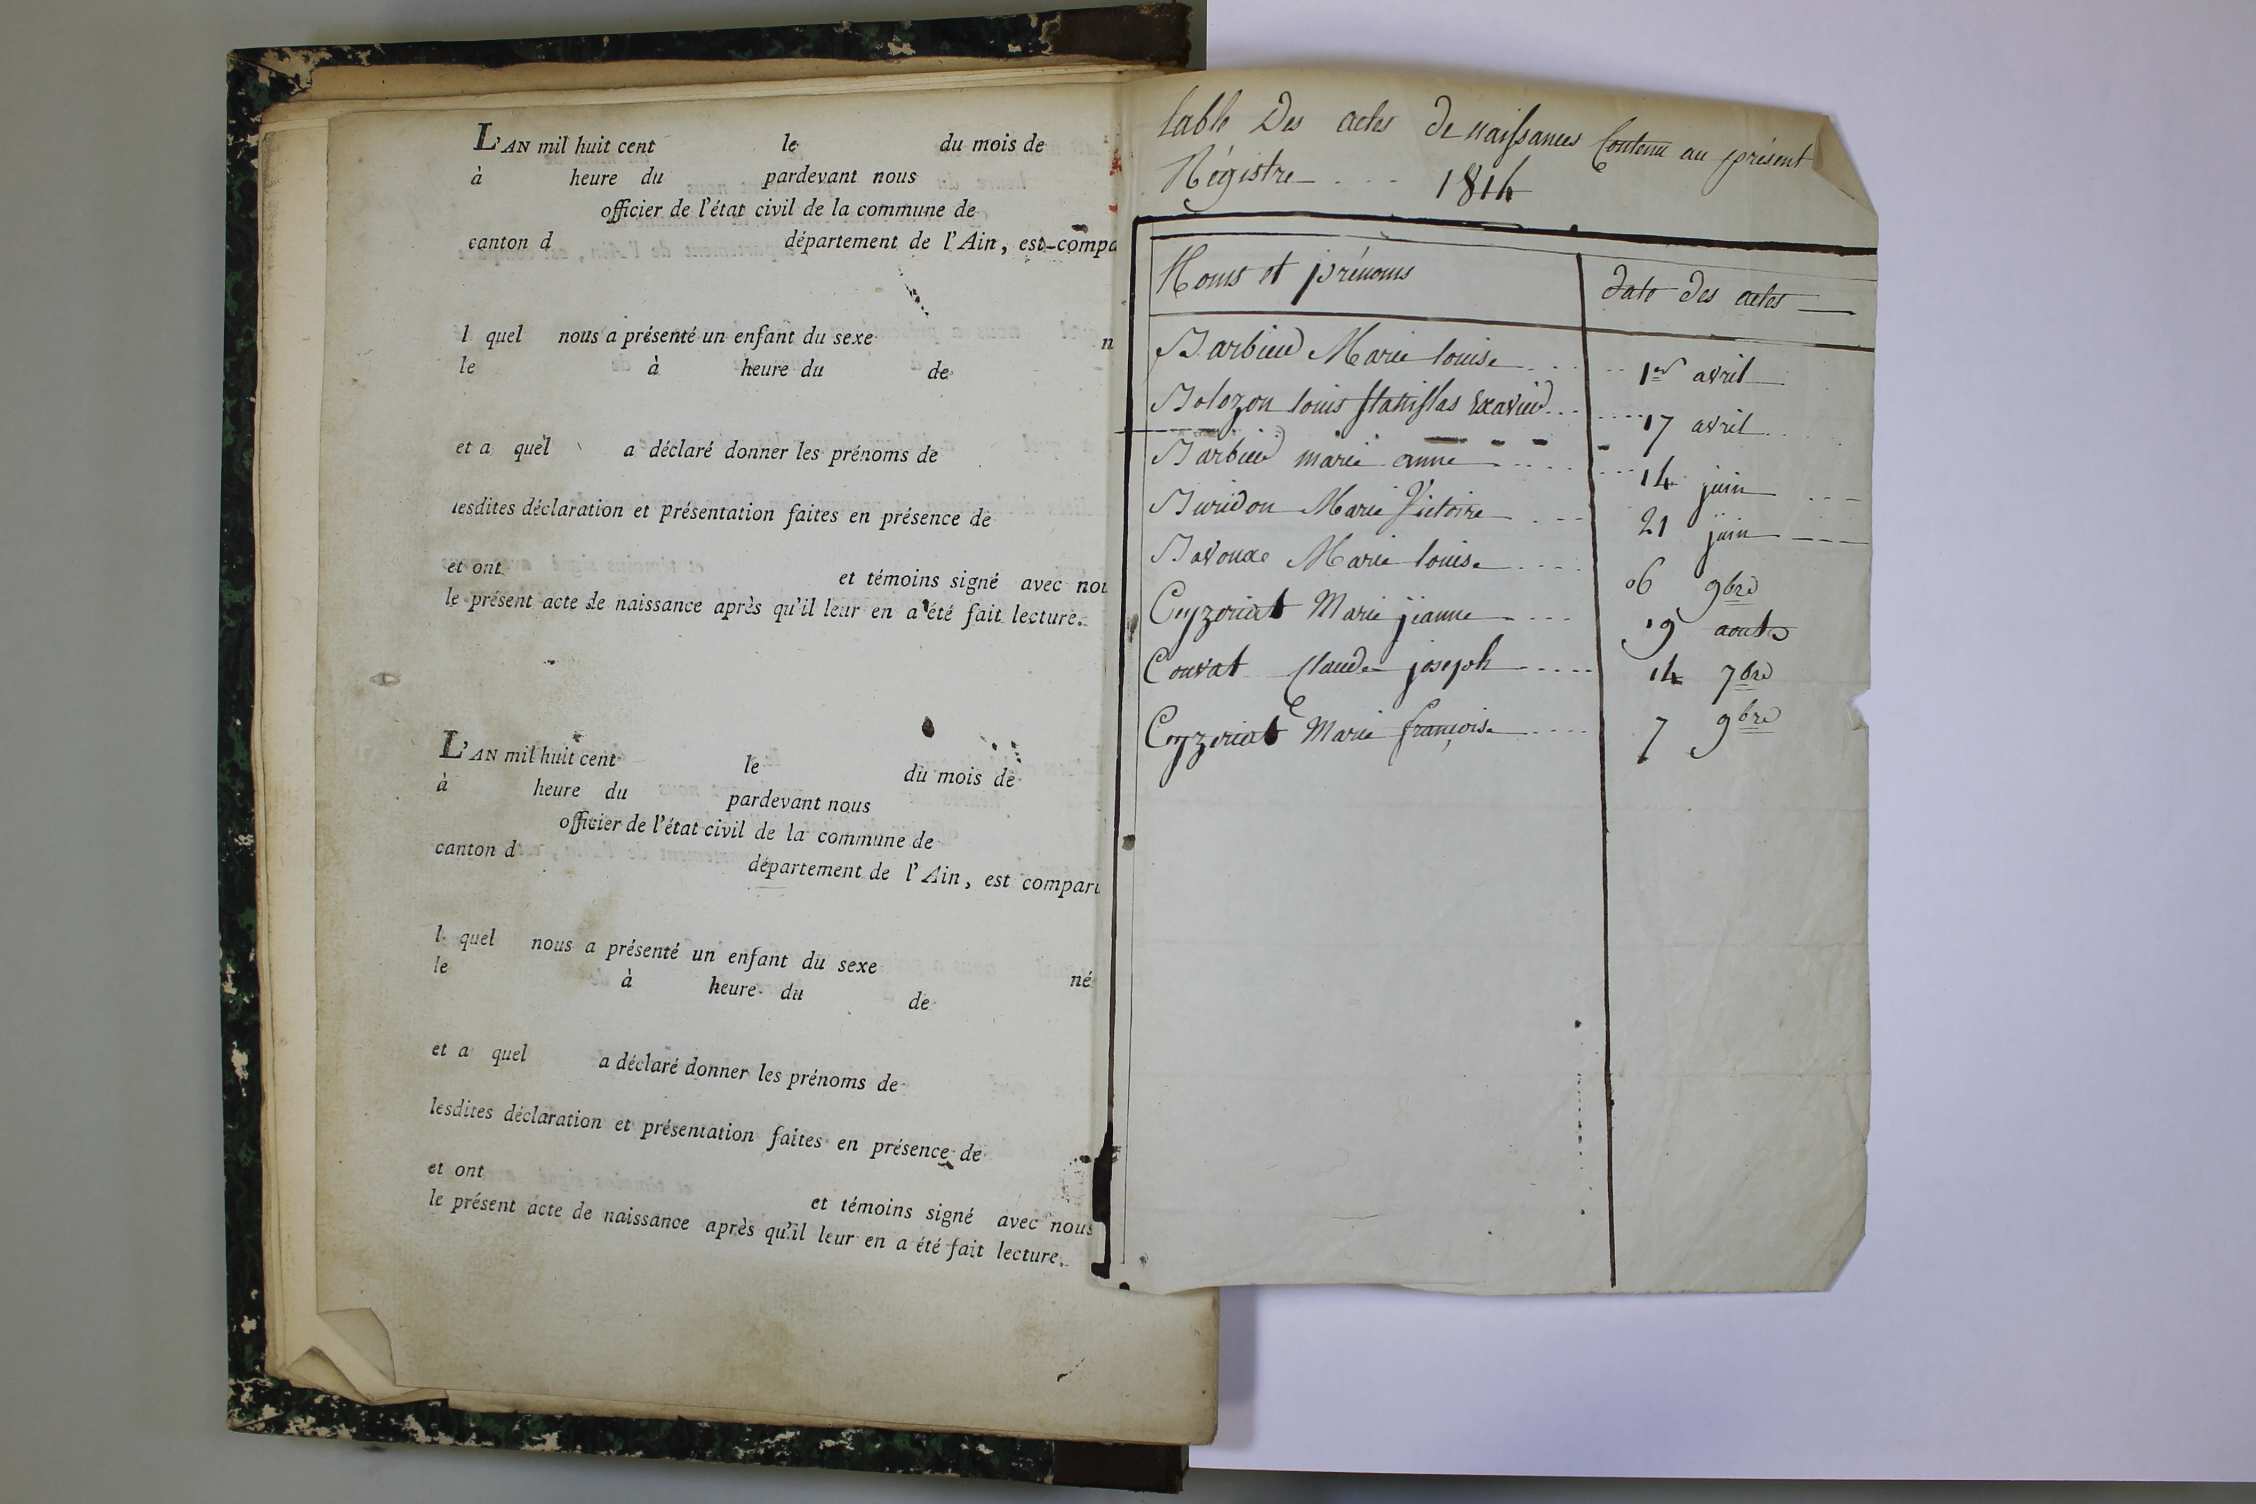 L'AN mil huit cent le du mois de
à heure du pardevant nous
officier de l'état civil de la commune de
canton d département de l'Ain, est compa
l quel nous a présenté un enfant du sexe n
le à heure du de
et a quel a déclaré donner les prénoms de
lesdites déclaration et présentation faites en présence de
et ont et témoins signé avec nou
le présent acte de naissance après qu'il leur en a été fait lecture.
L'AN mil huit cent le du mois de
à heure du pardevant nous
officier de l'état civil de la commune de
canton d département de l'Ain, est comparu
l quel nous a présenté un enfant du sexe né
le à heure du de
et a quel a déclaré donner les prénoms de
lesdites déclaration et présentation faites en présence de
et ont et témoins signé avec nous
le présent acte de naissance après qu'il leur en a été fait lecture.
table Des actes de naissances Contenu au présent
Régistre - - - 1814
Noms et prénoms date des actes
Barbier Marie louise 1er avril
Bolozon louis stanislas Exavier 17 avril
Barbier marie anne 14 juin
Buridon Marie Victoire 21 juin
Bavoux Marie louise 6 9bre
Ceyzeriat Marie jeanne 19 aout
Convat Claude joseph 14 7bre
Ceyzeriat Marie françoise 7 9bre